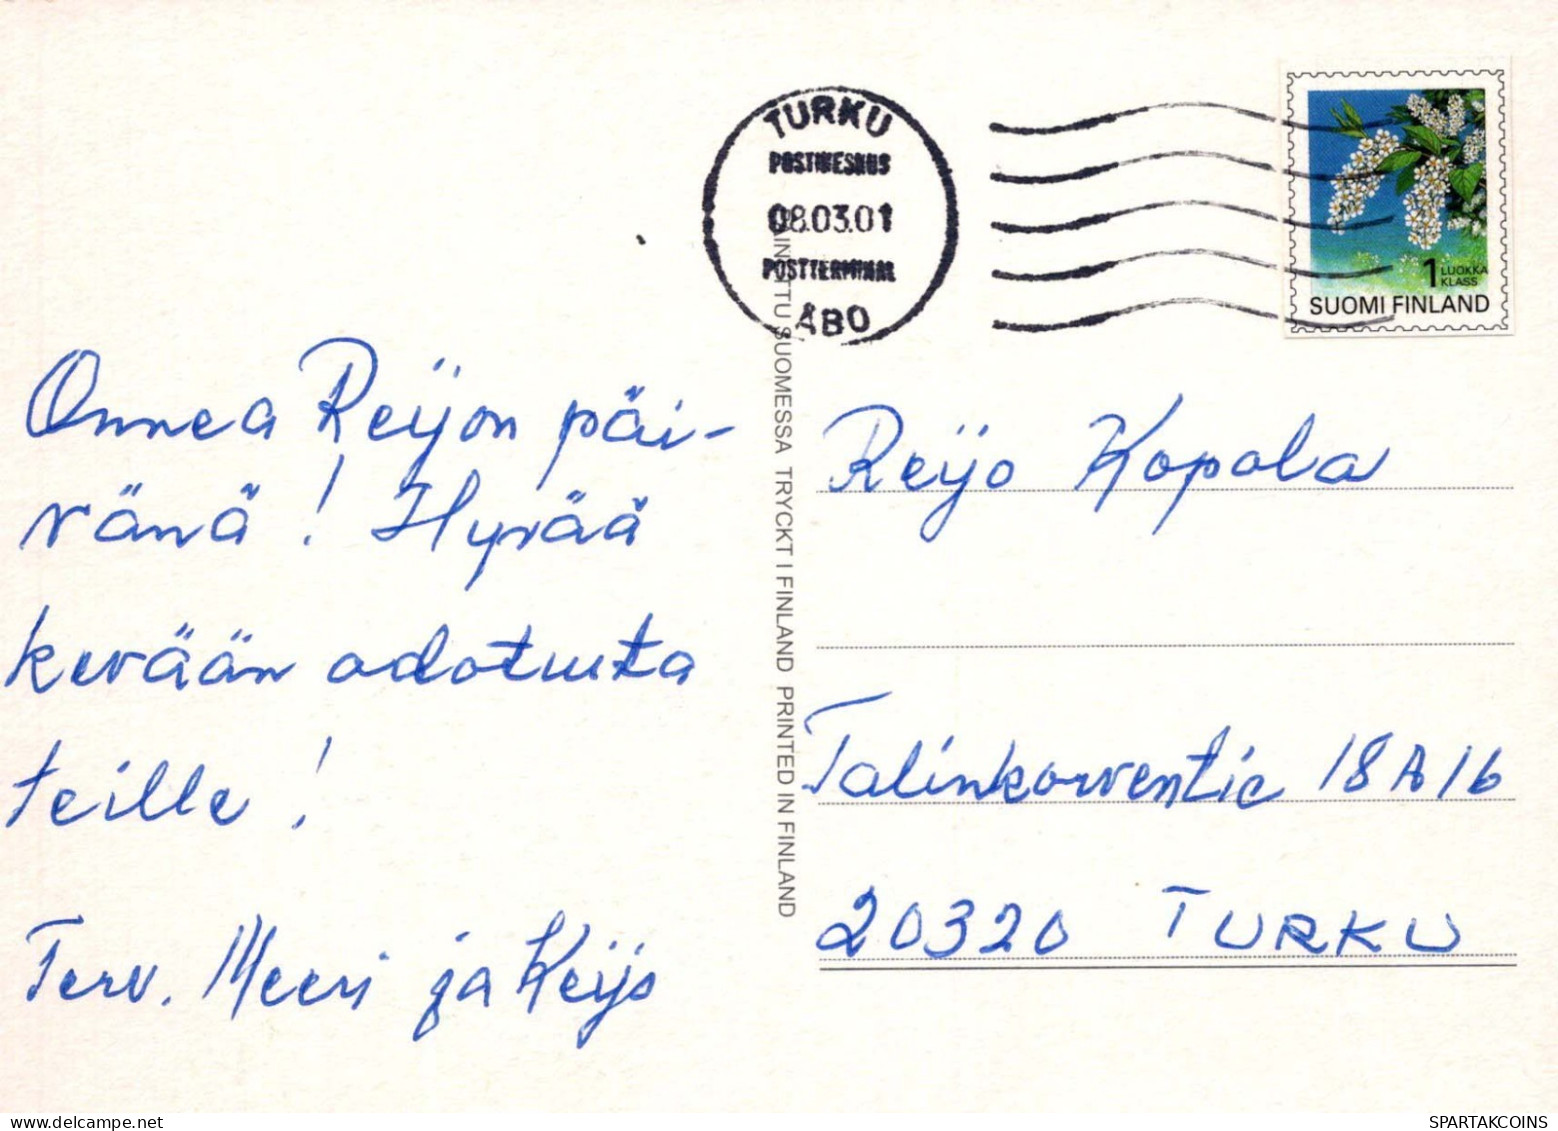 TURKU
POSTIKESKUS
08.03.01
POSTTERMINAL
ÅBO
1 LUOKKA
KLASS
SUOMI FINLAND
Onnea Reijon päi-
vänä! Hyvää
kevään odotusta
teille!
Terv. Meeri ja Keijo
PAINETTU SUOMESSA TRYCKT I FINLAND PRINTED IN FINLAND
Reijo Kopola
Talinkorventie 18 A 16
20320 TURKU
SPARTAKCOINS